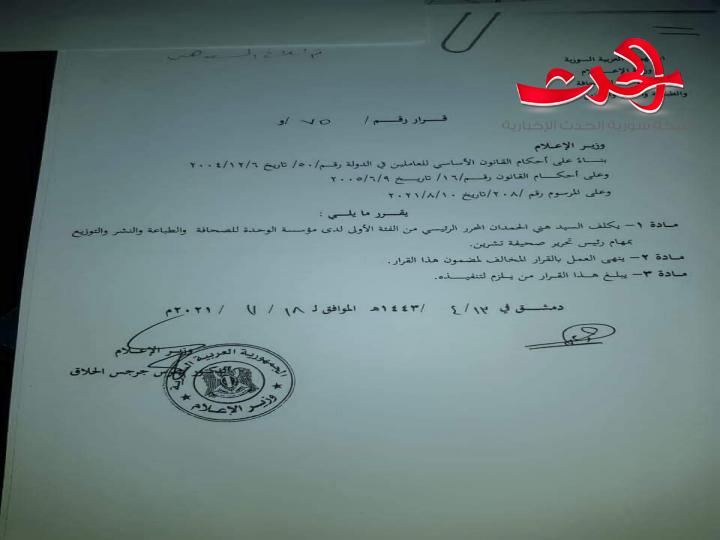 العربية السورية
وزارة الإعلام
الحدث
شبكة سورية الحدث الإخبارية
قرار رقم / ٧٥ /و
وزير الإعلام
بناءً على أحكام القانون الأساسي للعاملين في الدولة رقم/٥٠/ تاريخ ٢٠٠٤/١٢/٦
وعلى أحكام القانون رقم/١٦/ تاريخ ٢٠٠٥/٦/٩
وعلى المرسوم رقم /٢٠٨/تاريخ ٢٠٢١/٨/١٠
يقرر ما يلي :
مادة ١- يكلف السيد هني الحمدان المحرر الرئيسي من الفئة الأولى لدى مؤسسة الوحدة للصحافة والطباعة والنشر والتوزيع
بمهام رئيس تحرير صحيفة تشرين.
مادة ٢- ينهى العمل بالقرار المخالف لمضمون هذا القرار.
مادة ٣- يبلغ هذا القرار من يلزم لتنفيذه.
دمشق في ١٣/ ٤ /١٤٤٣هـ الموافق لـ ١٨ / / ٢٠٢١م
وزير الإعلام
جرجس الحلاق
الجمهورية العربية السورية
وزير الإعلام